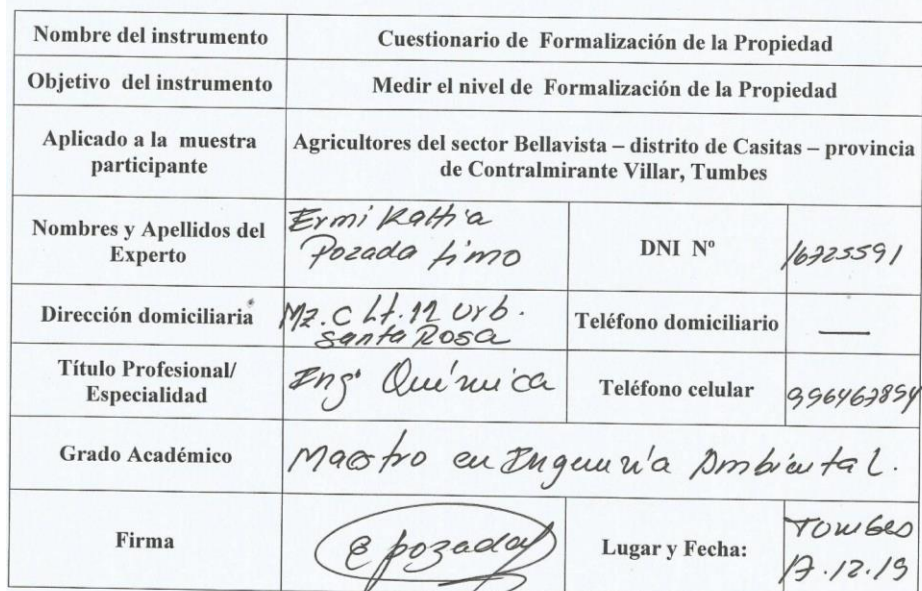 Nombre del instrumento
Cuestionario de Formalización de la Propiedad
Objetivo del instrumento
Medir el nivel de Formalización de la Propiedad
Aplicado a la muestra
participante
Agricultores del sector Bellavista – distrito de Casitas – provincia
de Contralmirante Villar, Tumbes
Nombres y Apellidos del
Experto
Ermi Kathia
Pozada Limo
DNI Nº
16725591
Dirección domiciliaria
Mz. C Lt. 12 Urb.
Santa Rosa
Teléfono domiciliario
—
Título Profesional/
Especialidad
Ing. Química
Teléfono celular
996467894
Grado Académico
Maestro en Ingeniería Ambiental.
Firma
E pozada
Lugar y Fecha:
Tumbes
17.12.19